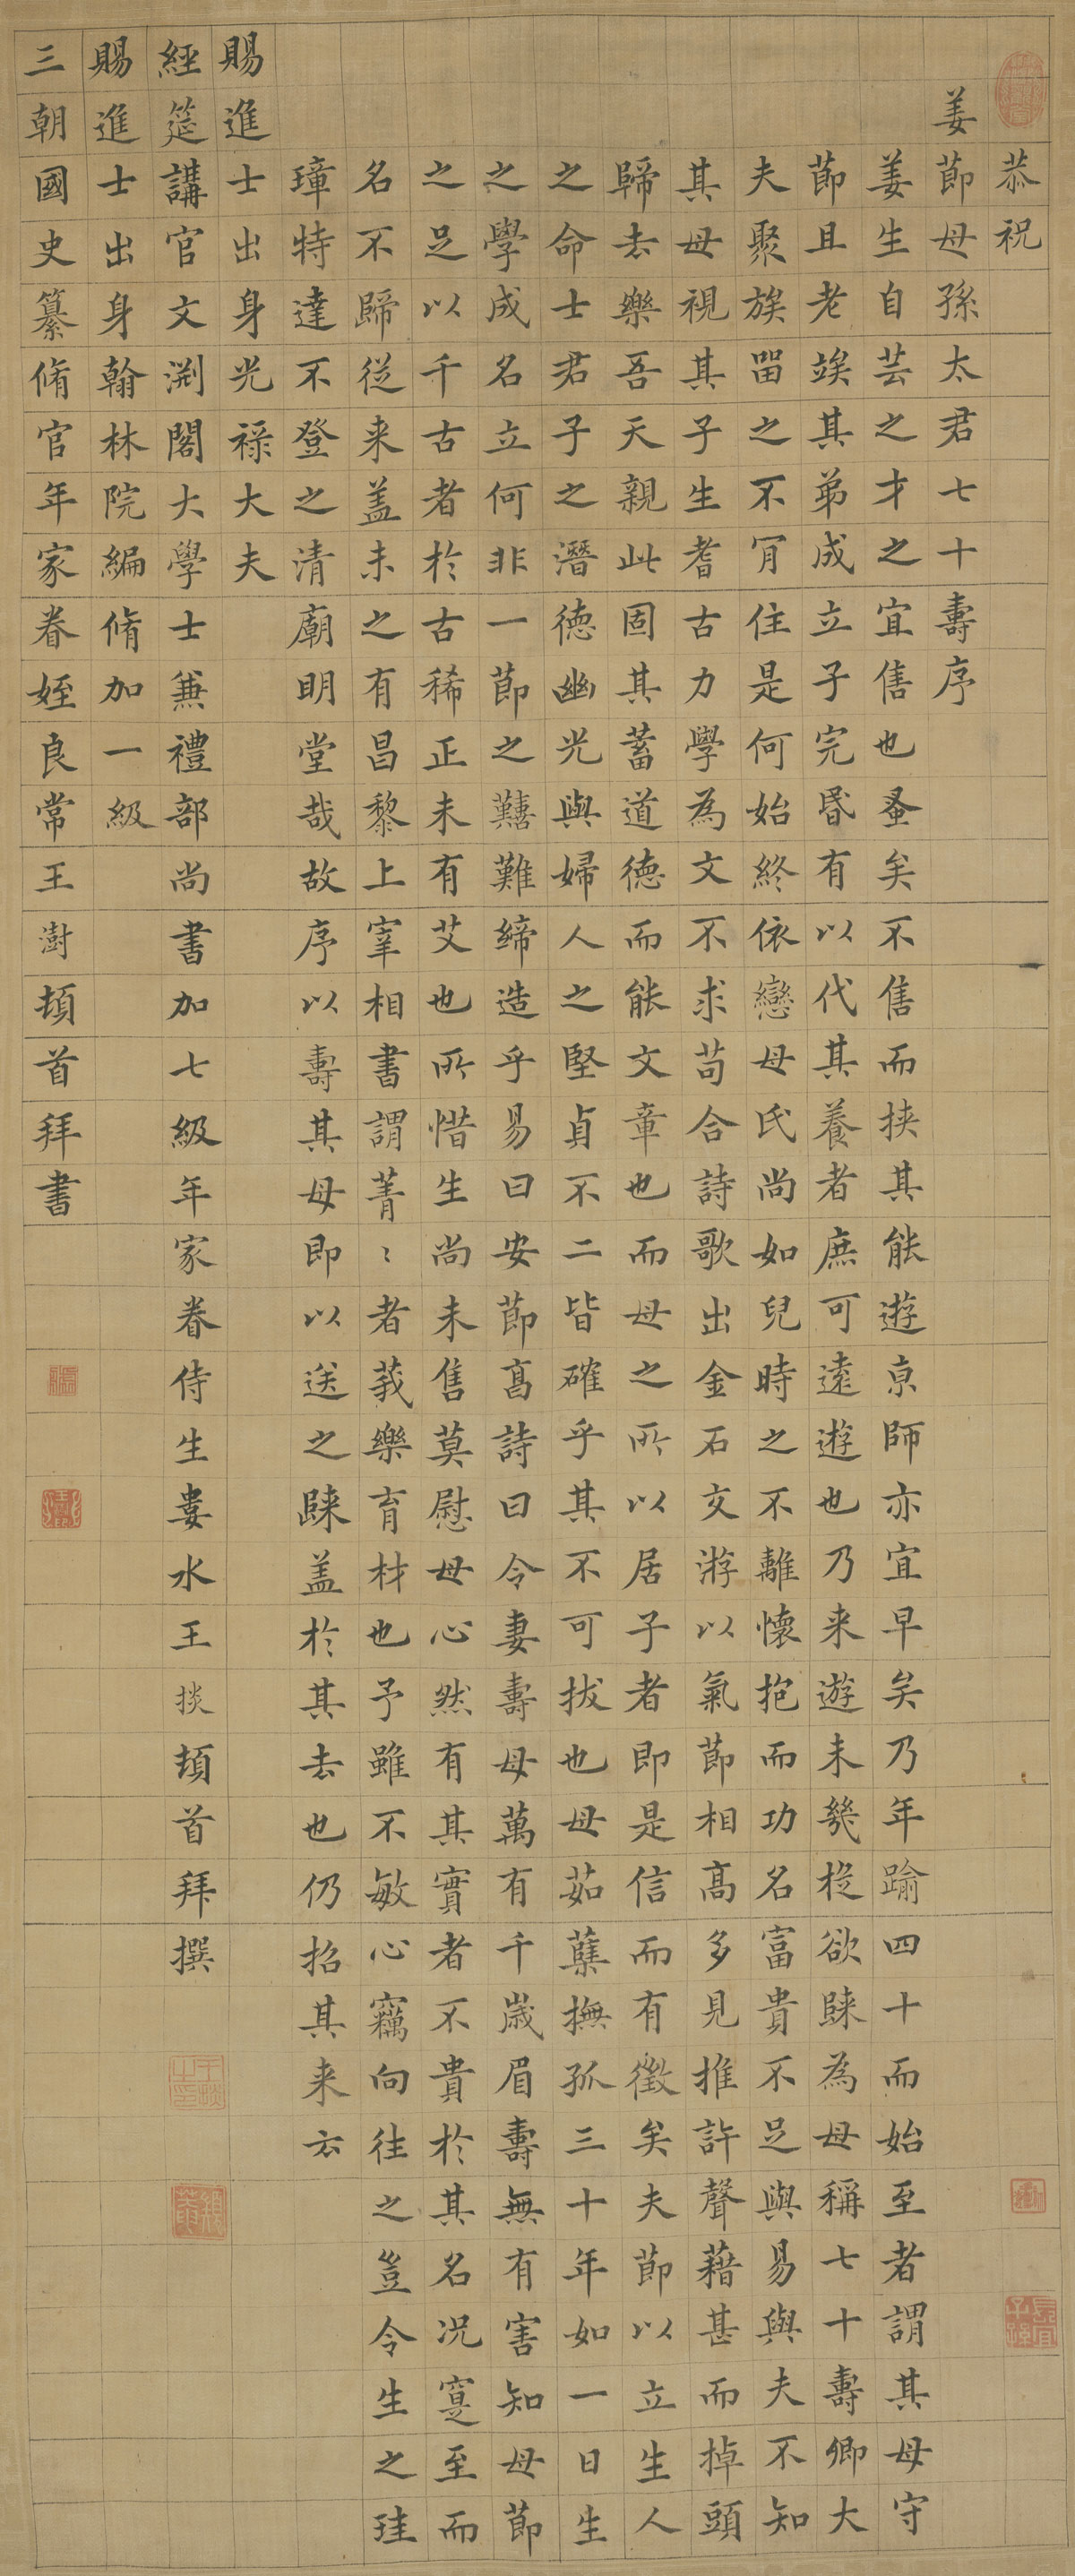 恭祝
姜節母孫太君七十壽序
姜生自芸之才之宜售也蚤矣不售而挟其能遊京師亦宜早矣乃年踰四十而始至者謂其母守
節且老竢其弟成立子完昬有以代其養者庶可遠遊也乃来遊未幾㧞欲歸為母稱七十壽卿大
夫聚族畱之不肎住是何始終依戀母氏尚如兒時之不離懷抱而功名富貴不足與易與夫不知
其母視其子生耆古力學為文不求茍合詩歌出金石交游以氣節相高多見推許聲藉甚而掉頭
歸去樂吾天親此固其蓄道德而能文章也而母之所以居子者即是信而有徵矣夫節以立生人
之命士君子之潛德幽光與婦人之堅貞不二皆確乎其不可拔也母茹蘗撫孤三十年如一日生
之學成名立何非一節之囏難締造乎易曰安節高詩曰令妻壽母萬有千歲眉壽無有害知母節
之足以千古者於古稀正未有艾也所惜生尚未售莫慰母心然有其實者不貴於其名况寔至而
名不歸從来盖未之有昌黎上宰相書謂菁〻者莪樂育材也予雖不敏心竊向往之豈令生之珪
璋特達不登之清廟明堂哉故序以壽其母即以送之歸盖於其去也仍招其来云
賜進士出身光祿大夫
經筵講官文渊閣大學士兼禮部尚書加七級年家眷侍生婁水王掞頓首拜撰
賜進士出身翰林院編脩加一級
三朝國史纂脩官年家眷姪良常王澍頓首拜書
王掞之印